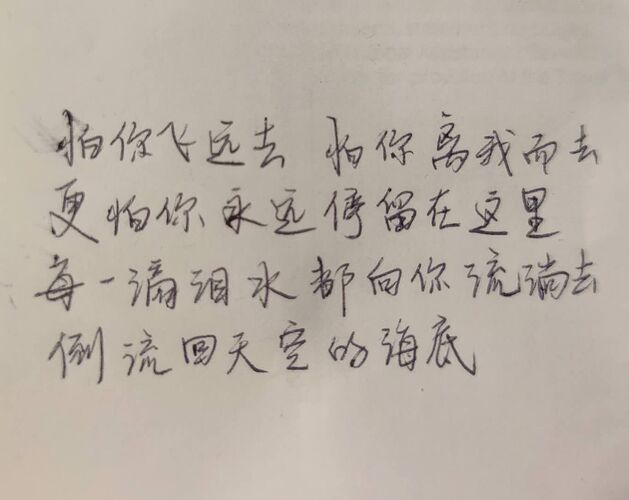 怕你飞远去 怕你离我而去
更怕你永远停留在这里
每一滴泪水都向你流淌去
倒流回天空的海底